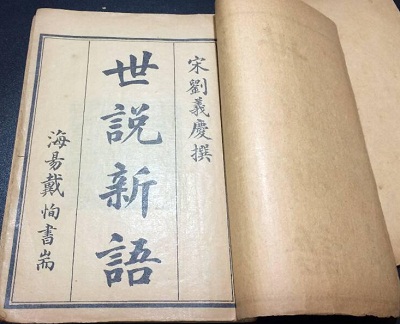 宋劉義慶撰
世說新語
海昜戴恂書耑